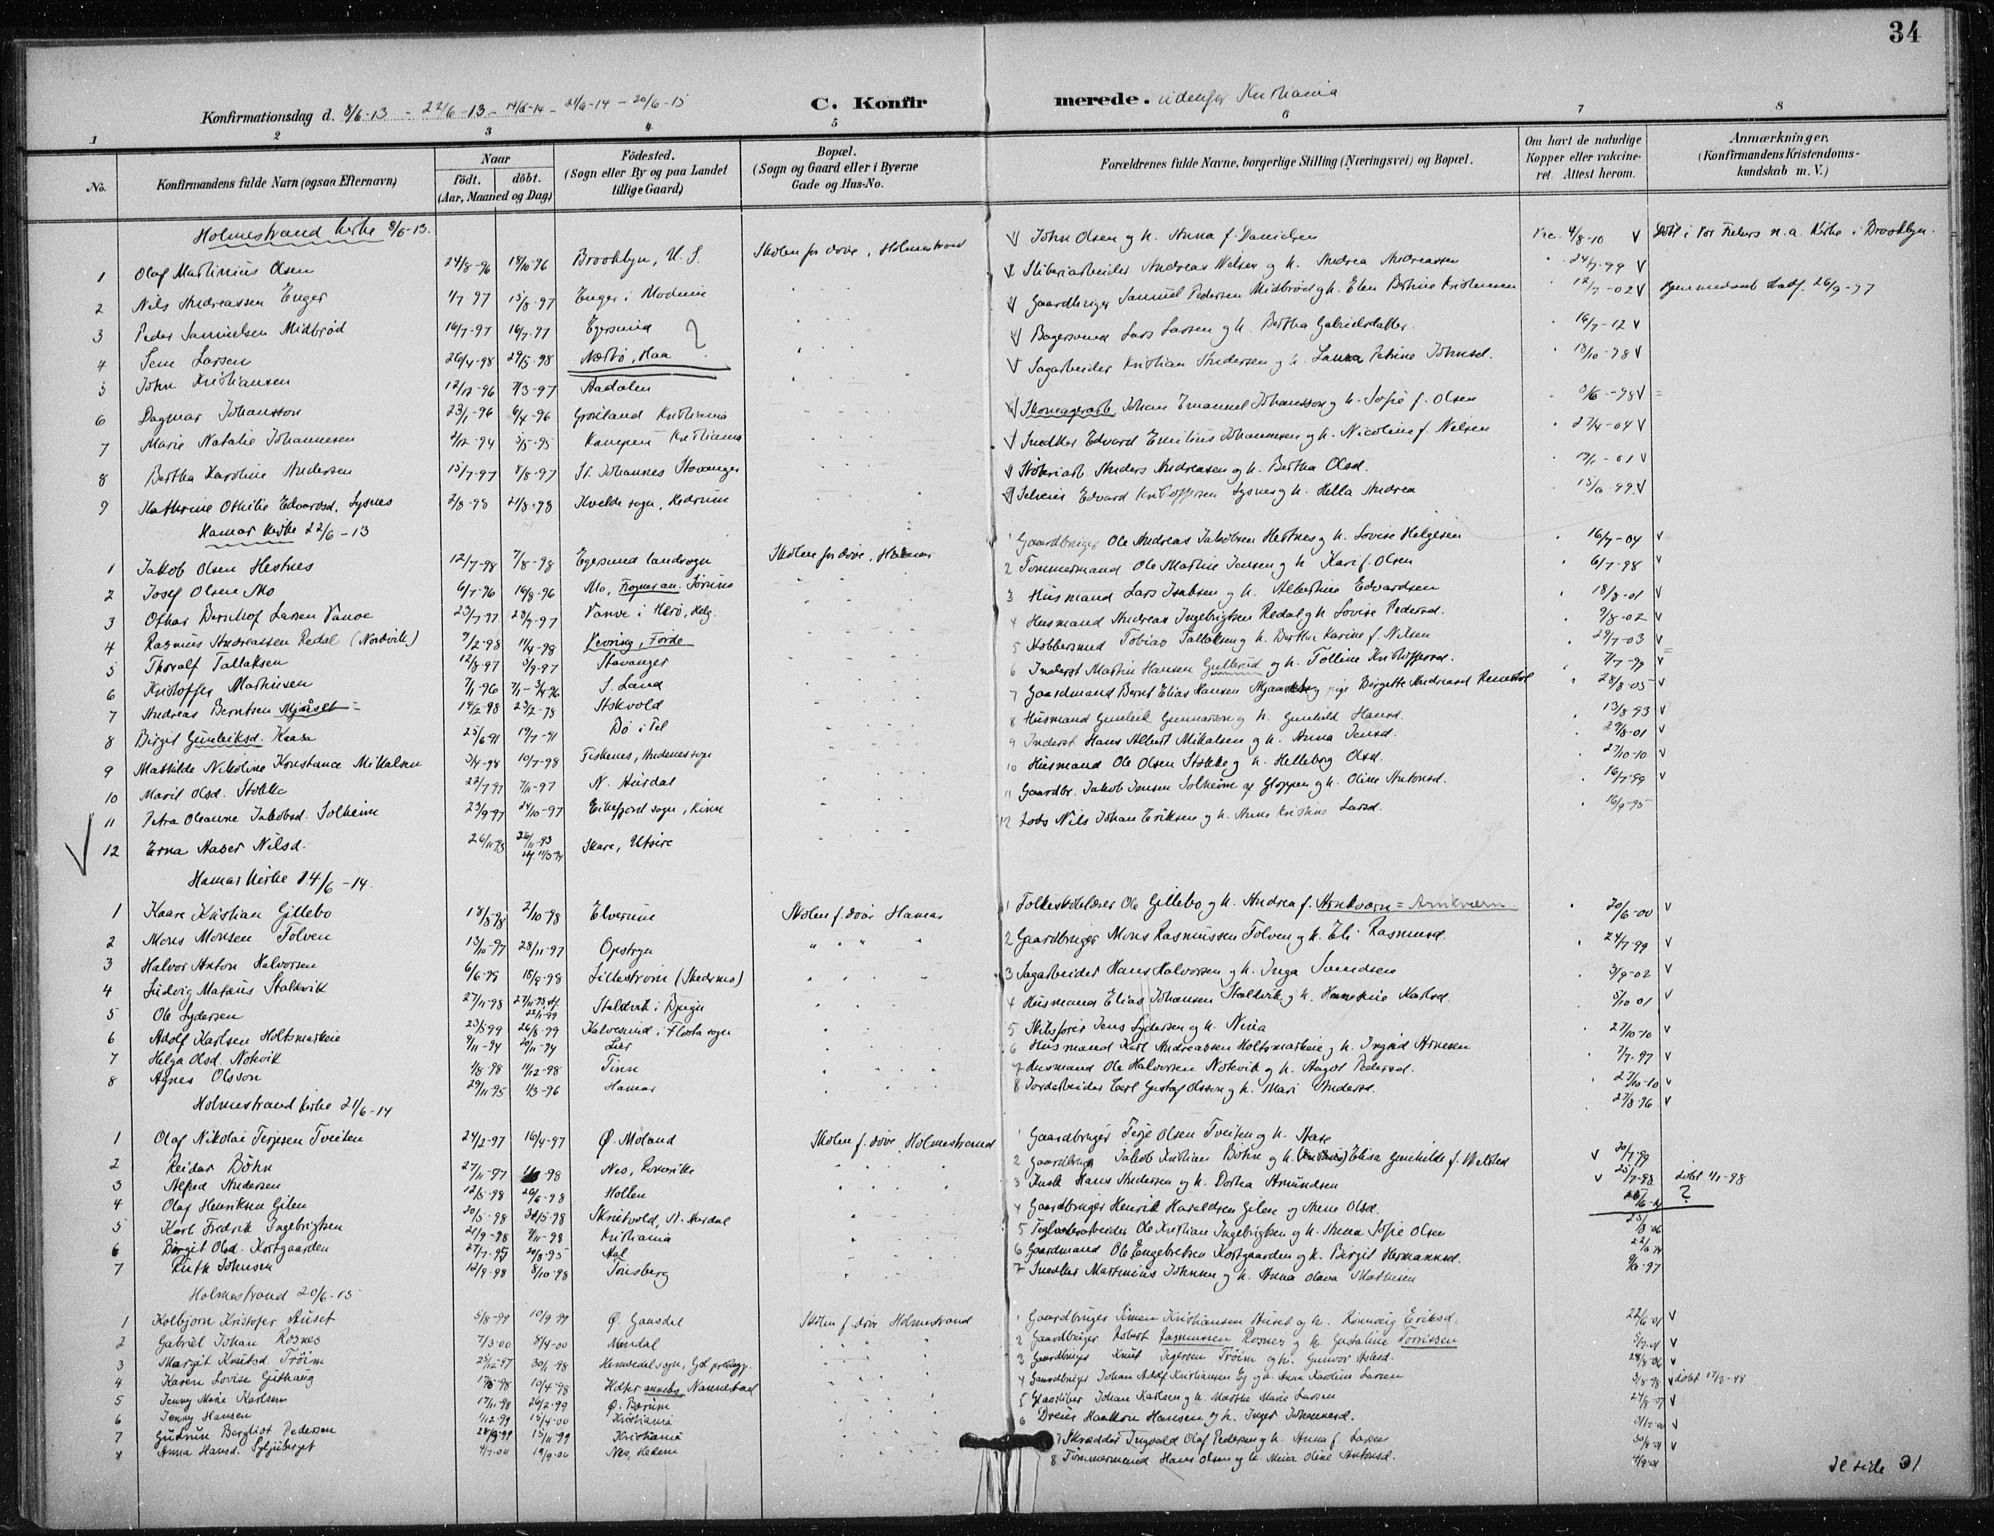 34
Konfirmationsdag d. 8/6-13 - 22/6-13 - 14/6-14 - 21/6-14 - 20/6-15
C. Konfirmerede. udenfor Kristiania
1 2 3 4 5 6 7 8
No. Konfirmandens fulde Navn (ogsaa Efternavn)
Naar födt. döbt. (Aar, Maaned og Dag)
Födested. (Sogn eller By og paa Landet tillige Gaard)
Bopæl. (Sogn og Gaard eller i Byerne Gade og Hus-No.
Forældrenes fulde Navne, borgerlige Stilling (Næringsvei) og Bopæl.
Om havt de naturlige Kopper eller vakcineret. Attest herom.
Anmærkninger. (Konfirmandens Kristendomskundskab m. V.)
Holmestrand kirke 8/6-13.
1 Olaf Martinius Olsen 24/8-96 18/10-96 Brooklyn, U.S. Skolen for døve, Holmestrand John Olsen og h. Anna f. Danielsen Vac. 4/8-10 v Døbt i Vor Frelsers n.a. Kirke i Brooklyn.
2 Nils Andreassen Enger 1/7-97 15/8-97 Enger i Modum Andreas Nilsen og h. Andrea Andreassen 24/7-99 v
3 Peder Samuelsen Midbrød 16/7-97 16/7-97 Egersund Gaardbruger Samuel Pedersen Midbrød og h. Elen Bertine Kristensen 12/7-02 v Hjemmedøbt stadf. 26/9-97
4 Sem Larsen 26/4-98 29/5-98 Nærbø, Haa ? Bagersvend Lars Larsen og h. Bertha Gabrielsdatter. 16/7-12 v
5 John Kristiansen 12/12-96 7/3-97 Aadalen Sagarbeider Kristian Andersen og h. Laura Petrine Johnsd. 18/10-98 v
6 Dagmar Johansson 23/1-96 6/4-96 Grønland Kristiania Skomagerarb. Johan Emanuel Johansson og h. Sofie f. Olsen 3/6-98 v =
7 Marie Natalie Johannesen 2/12-94 5/5-95 Kampen Kristiania Snedker Edvard Emilius Johannesen og h. Nicoline f. Nilsen 27/4-04 v
8 Bertha Karoline Andersen 15/7-97 8/8-97 St. Johannes Stavanger Anders Andreasen og h. Bertha Olsd. 13/1-01 v
9 Kathrine Othilie Edvardsd. Sysnes 2/8-98 21/8-98 Kvelde sogn, Hedrum Edvard Kristoffersen Sysnes og h. Hella Andrea 15/6-99 v
Hamar kirke 22/6-13
1 Jakob Olsen Hestnes 12/7-98 7/8-98 Egersund landsogn Skolen for døve, Hamar 1 Gaardbruger Ole Andreas Jakobsen Hestnes og h. Lovise Helgesen 16/7-04 v
2 Josef Olsen Mo 6/7-96 16/8-96 Mo, Sørum 2 Tømmermand Ole Martin Jensen og h. Kari f. Olsen 6/7-98 v
3 Othar Bernhof Larsen Vanve 23/7-97 23/7-97 Vanve i Herø, Helg. 3 Husmand Lars Isaksen og h. Albertine Edvardsen 18/8-01 v
4 Rasmus Andreassen Redal (Nordvik) 9/2-98 11/4-98 Førde 4 Husmand Andreas Ingebrigtsen Redal og h. Lovise Pedersd. 9/8-02 v
5 Thoralf Tallaksen 12/8-97 5/9-97 Stavanger 5 Kobbersmed Tobias Tallaksen og h. Bertha Karine f. Nilsen 29/7-03 v
6 Kristoffer Martinsen 7/1-96 7/1-3/4-96 S. Land 6 Inderst Martin Hansen Gullerud og h. Talline Kristoffersd. 7/7-99 v
7 Andreas Berntsen Mjåset 14/2-98 23/2-98 Askvold 7 Gaardmand Bernt Elias Hansen pige Birgitte Andreasd 28/8-05 v
8 Birgit Gunleiksd. Kaasa 25/6 91 19/7-91 Bø i Tel 8 Husmand Gunleik Gunnarson og h. Gunhild Hansd. 13/8 93 v
9 Mathilde Nikoline Konstance Mikalsen 3/4-98 10/7-98 Fiskenes, Andenes sogn 9 Inderst Hans Albert Mikalsen og h. Anna Jensd. 29/8-01 v
10 Marit Olsd. Stokke 22/7 97 7/11-97 N. Aurdal 10 Husmand Ole Olsen Stokke og h. Helleborg Olsd. 27/10-10 v
11 Petra Oleanne Jakobsd. Solheim 23/9-97 24/10-97 Eikefjord sogn, Kinn 11 Gaardbr. Jakob Jensen Solheim af Gloppen og h. Oline Antonsd. 16/7-99 v
12 Erna Aaser Nilsd. 26/11 93 26/11-93 Skare, Utsire 12 Lods Nils Johan Eriksen og h. Anne Kristine Larsd. 16/9-95
Hamar kirke 14/6-14.
1 Kaare Kristian Gillebo 18/8-98 2/10-98 Elverum Skolen f. døve Hamar 1 Folkeskolelærer Ole Gillebo og h. Andrea f. Arnkværn = Arnkværn. 20/6-00 v
2 Mons Monsen Tolven 13/10-97 28/11-97 Opstryn 2 Gaardbruger Mons Rasmussen Tolven og h. Eli Rasmusd. 24/7-99 v
3 Halvor Anton Halvorsen 6/6-98 18/9-98 Lillestrøm (Skedsmo) 3 Sagarbeider Hans Halvorsen og h. Inga Svendsen 3/9-02 v
4 Ludvig Mateus Staldvik 27/11-98 Staldvik i Bjugn 4 Husmand Elias Johansen Staldvik og h. 5/10 01 v
5 Ole Sydersen 23/5 99 26/8-99 Kalvesund i Flosta sogn 5 Skibsfører Jens Sydersen og h. Nina 27/10-10 v
6 Adolf Karlsen Holtsmarkeie 9/11-94 20/11-94 Lier 6 Husmand Karl Andreassen Holtsmarkeie og h. Ingrid Arnesen 7/7-97 v
7 Helga Olsd. Notevik 1/8-98 11/12-98 Tinn 7 Husmand Ole Halvorsen Notevik og h. Aagot Pedersd. 27/10-10 v
8 Agnes Olsson 29/11-95 1/3-96 Hamar 8 Jordarbeider Carl Gustaf Olsson og h. Mari Andersd. 27/8-96 v
Holmestrand kirke 21/6-14
1 Olaf Nikolai Terjesen Tveiten 24/2-97 16/4-97 Ø. Moland Skolen f. døve Holmestrand 1 Gaardbruger Terje Olsen Tveiten og h. Aase
2 Reidar Bøhn 27/11-97 -98 Nes, Romerike 2 Gaardbruger Jakob Kristian Bøhn og h. Elisa Gunhilde f. Melsted v 20/7-99
3 Alfred Andersen 12/5-98 26/6-98 Hollen 3 Kusk Hans Andersen og h. Dortea Amundsen v 25/7-98 døbt 1/1-98
4 Olaf Henriksen Gilen 20/5-98 30/5-98 Skrutvold, N. Aurdal 4 Gaardbruger Henrik Haraldsen Gilen og Anne Olsd. ?
5 Karl Fredrik Ingebrigtsen 21/9-98 9/11-98 Kristiania 5 Teglverksarbeider Ole Kristian Ingebrigtsen og h. Anna Sofie Olsen
6 Birgit Olsd. Kortgaarden 27/7-95 20/8-95 Aal 6 Gaardmand Ole Engebretsen Kortgaarden og h. Birgit Hermannsd.
7 Ruth Johnsen 12/9-98 8/10-98 Tønsberg 7 Snedker Martinius Johnsen og h. Anna Olava Mathisen 9/6-97
Holmestrand 20/6-15
1 Kolbjørn Kristofer Huset 5/8-99 10/9-99 Ø. Gausdal Skolen f. døve Holmestrand 1 Gaardbruger Simen Kristiansen Huset og h. Rønnaug Eriksd. 22/6-01 v
2 Gabriel Johan Rosnes 7/3-00 8/4-00 Mandal 2 Gaardbruger Robert Rasmussen Rosnes og h. Gustaline Torrissen v
3 Margit Knutsd. Trøim 25/12-97 30/1-98 Hemsedal sogn, Gol præstegj. 3 Gaardbruger Knut Trøim og h. Gunvor 28/8-06 v
4 Karen Lovise 10/4-98 Holter annebs Nannestad 4 Gaardbruger Johan Adolf Kristiansen og h. Anna Karoline Larsen 3/8-98 v døbt
5 Jenny Marie Karlsen 17/11-98 26/2-99 Ø. Bærum 5 Johan Karlsen og h. Marthe Marie Larsen v
6 Jenny Hansen 1/12-99 15/4-00 Kristiania 6 Dreier Haakon Hansen og h. Inger Johannesd. v
7 Gudrun Bergliot Pedersen 28/9-99 15/11-99 Kristiania 7 Skrædder Ingvald Olaf Pedersen og h. Anna f. Larsen 30/8-01 v
8 Anna Hansd. 4/7-00 19/9-00 Nes, Hedem 8 Tømmermand Hans Olsen og h. Maria Oline Antonsd. 4/9-01
Se side 31